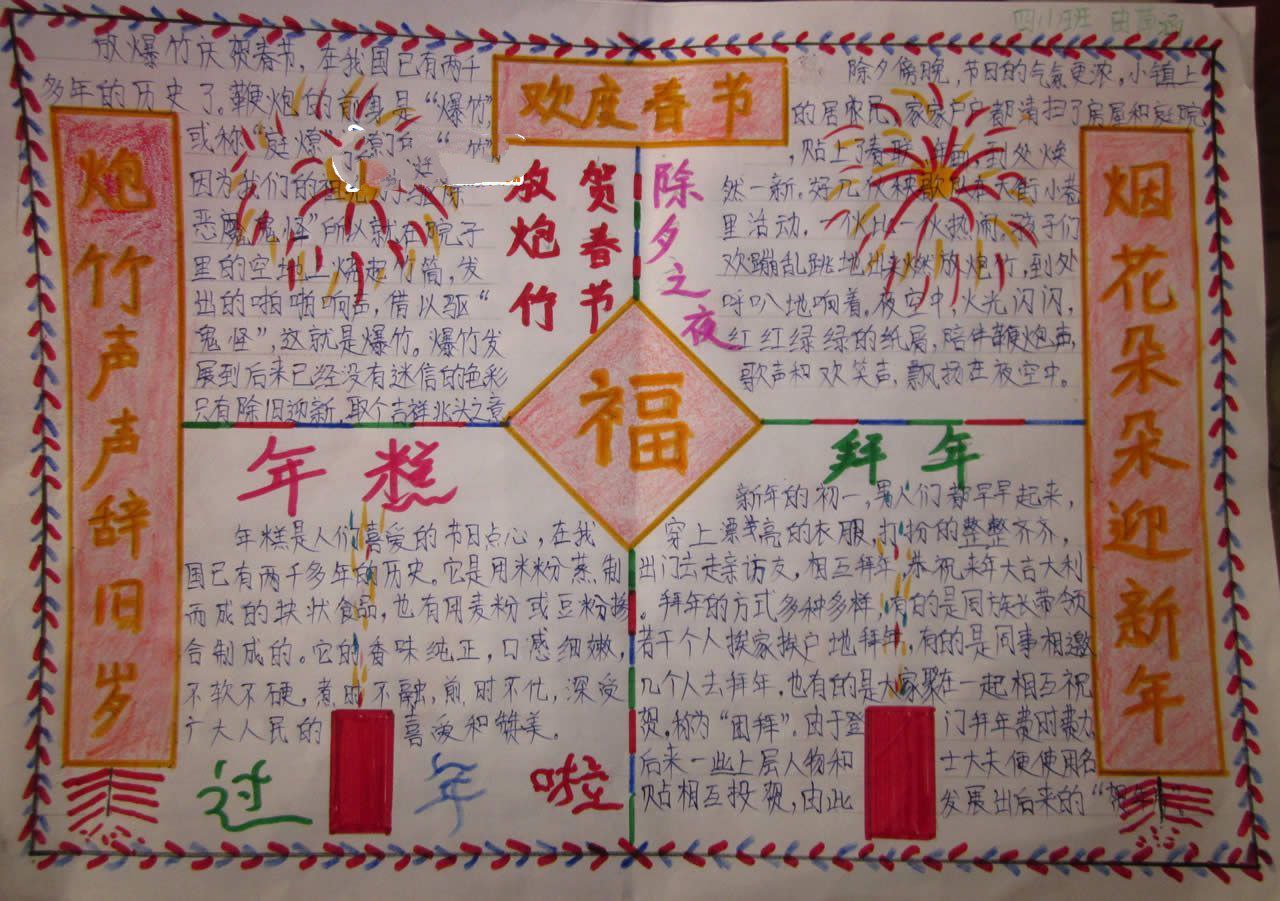 欢度春节
炮竹声声辞旧岁
烟花朵朵迎新年
福
放爆竹庆祝春节，在我国已有两千
多年的历史了。鞭炮的前身是“爆竹”
或称“庭燎”
因为我们的祖先为了驱除
恶魔鬼怪”所以就在院子
里的空地上烧起竹筒，发
出的啪啪响声，借以驱“
鬼怪”，这就是爆竹。爆竹发
展到后来已经没有迷信的色彩
只有除旧迎新，取个吉祥兆头之意
放炮竹
贺春节
除夕之夜
除夕傍晚，节日的气氛更浓，小镇上
的居农民，家家户户都清扫了房屋和庭院
，贴上了春联 年画，到处焕
然一新，好几伙秧歌队在大街小巷
里活动，一伙比一伙热闹，孩子们
欢蹦乱跳地出来燃放炮竹，到处
呼叭地响着，夜空中，火光闪闪，
红红绿绿的纸屑，陪伴鞭炮声，
歌声和欢笑声，飘扬在夜空中。
年糕
年糕是人们喜爱的节日点心，在我
国已有两千多年的历史。它是用米粉蒸制
而成的块状食品，也有用麦粉或豆粉掺
合制成的。它的香味纯正，口感细嫩，
不软不硬，煮时不融，煎时不化，深受
广大人民的喜爱和赞美。
过年啦
拜年
新年的初一，男人们都早早起来，
穿上漂亮的衣服，打扮的整整齐齐，
出门去走亲访友，相互拜年，恭祝来年大吉大利
。拜年的方式多种多样，有的是同族长带领
若干个人挨家挨户地拜年，有的是同事相邀
几个人去拜年，也有的是大家聚在一起相互祝
贺，称为“团拜”。由于登门拜年费时费力
后来一些上层人物和士大夫便使用名
贴相互投贺，由此发展出后来的“